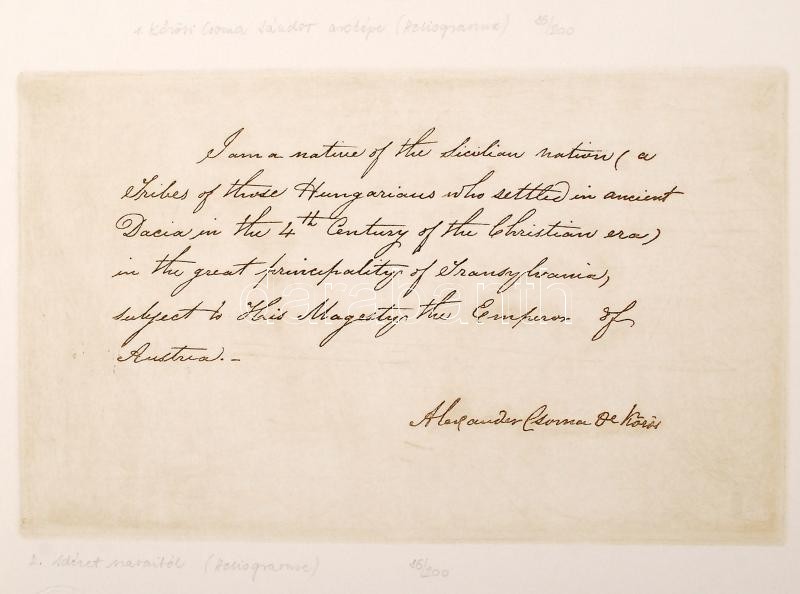 1. Kőrösi Csoma Sándor arcképe (Heliogravure) 26/200
I am a native of the Sicilian nation ( a
Tribes of those Hungarians who settled in ancient
Dacia in the 4th Century of the Christian era)
in the great principality of Transylvania,
subject to His Magesty the Emperor of
Austria. –
darabanth
Alexander Csoma de Körös
2. Idézet szavaiból (Heliogravure) 26/200